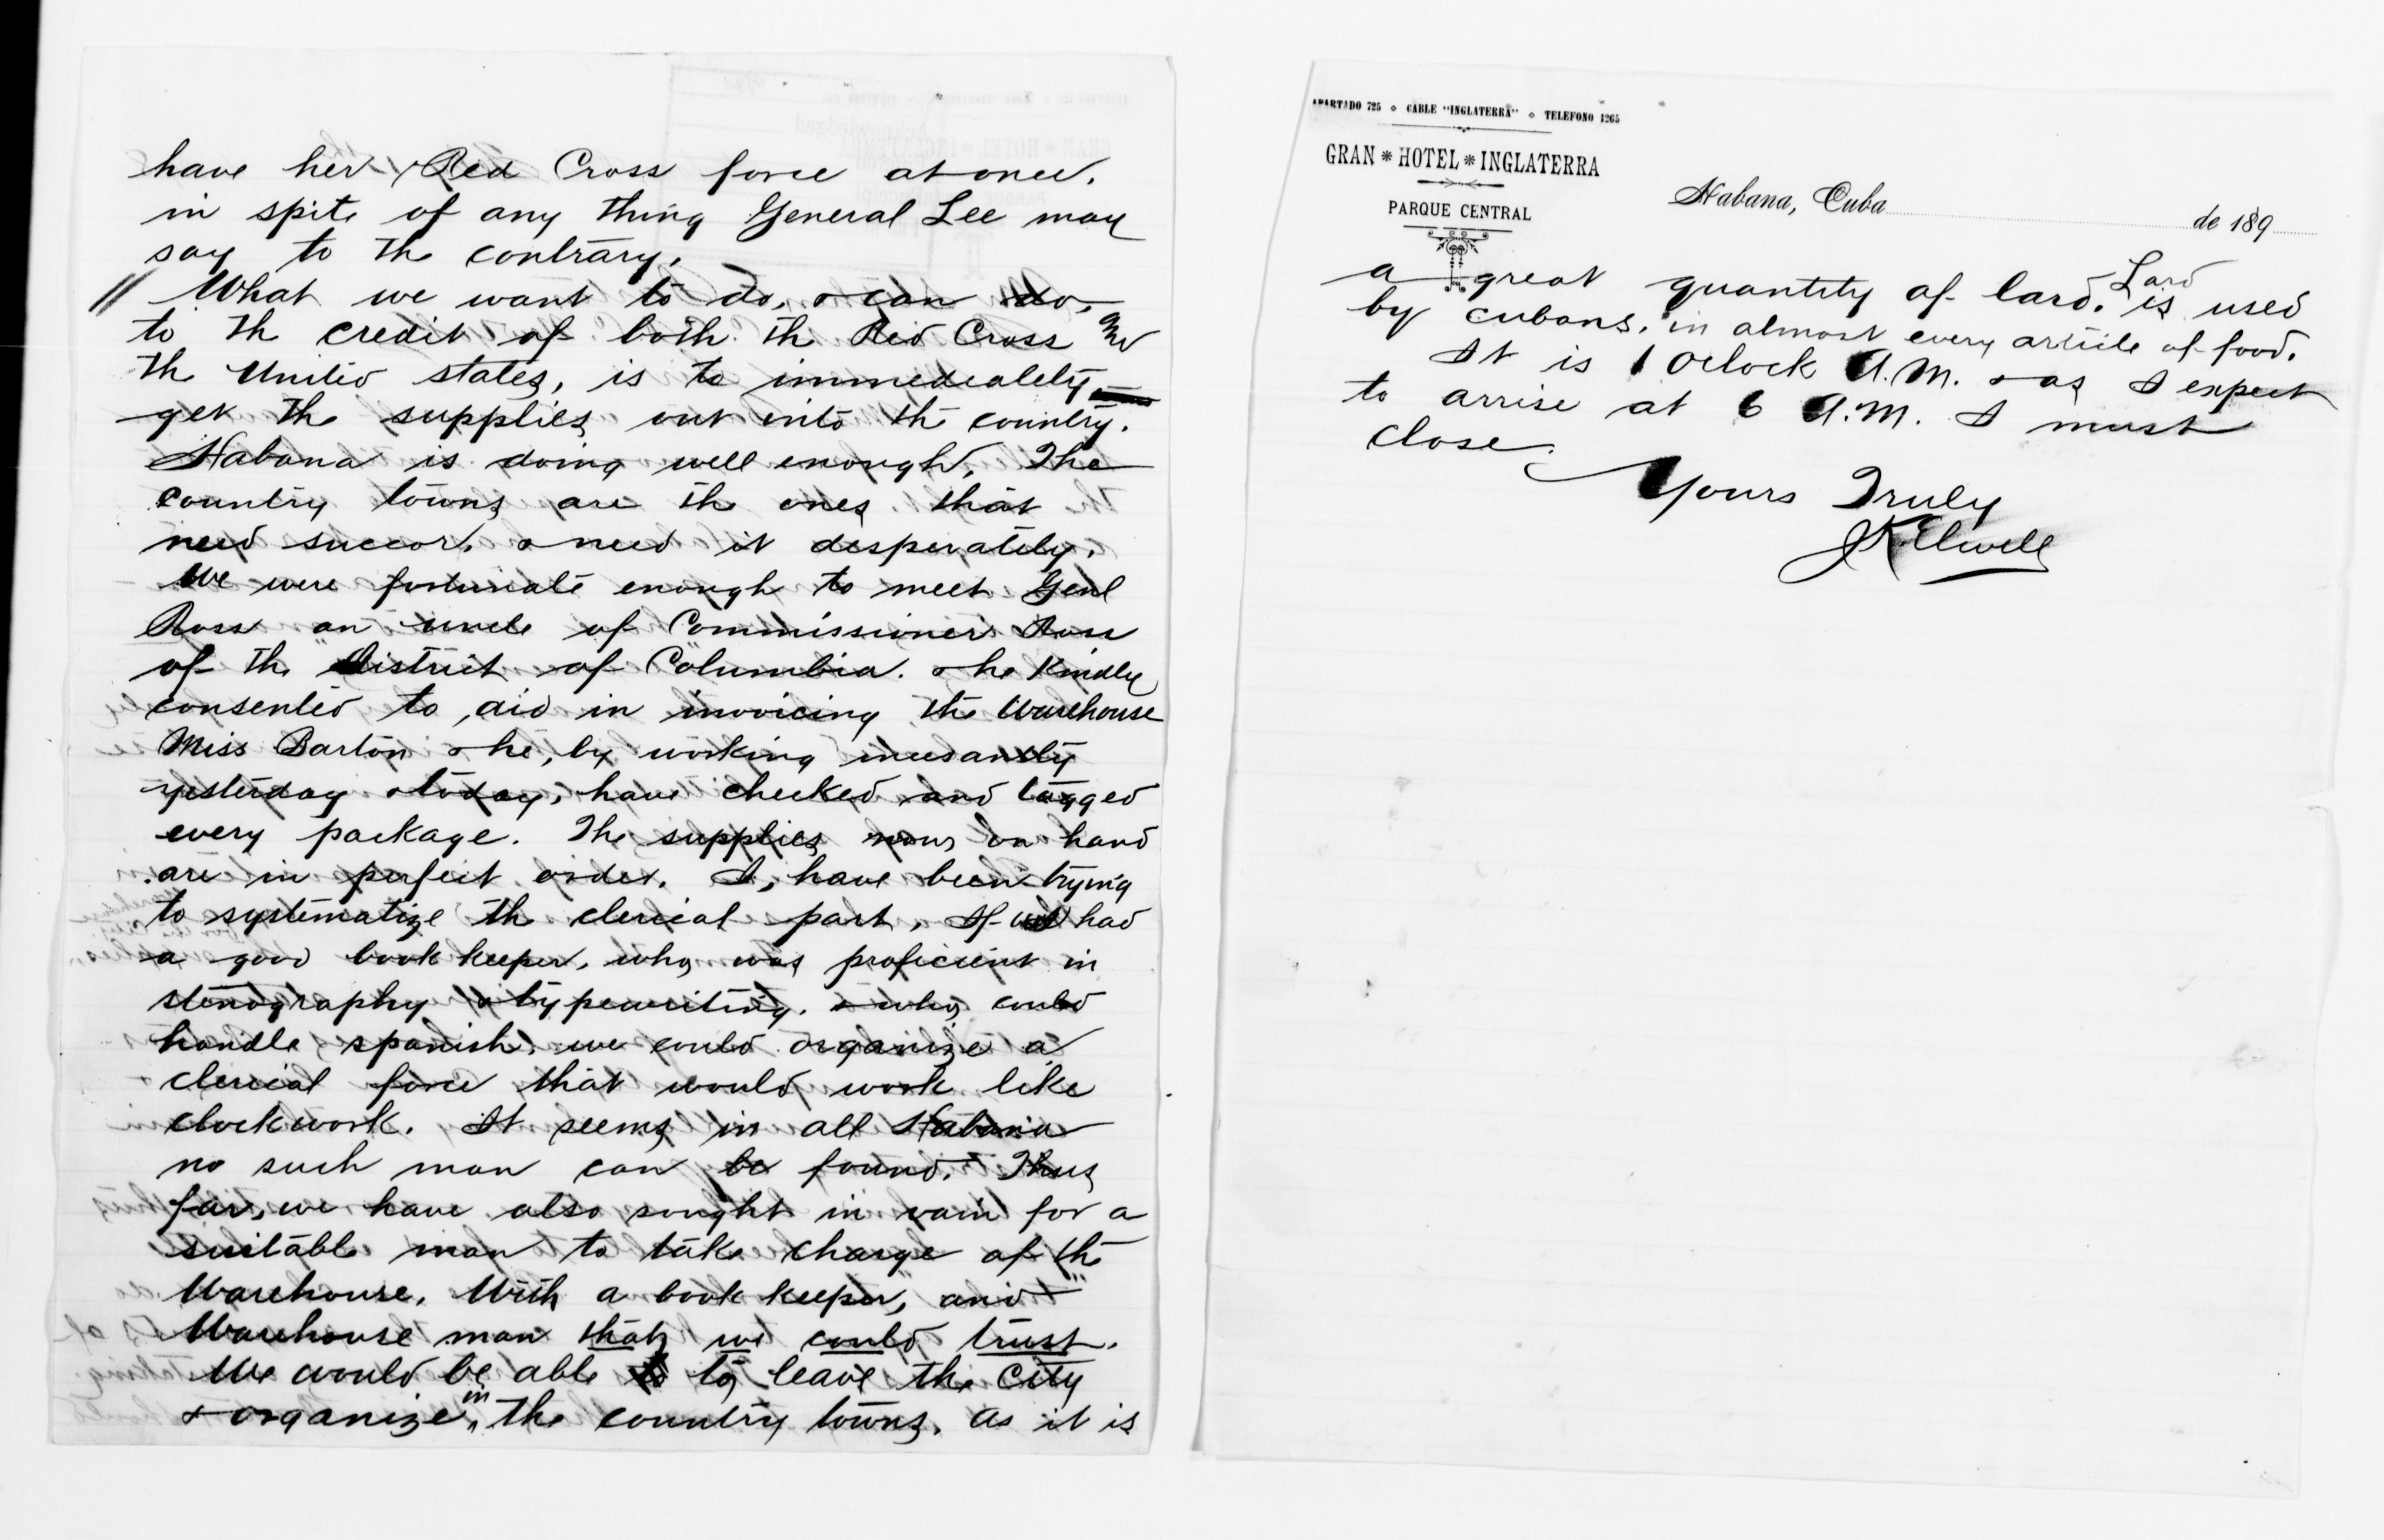 have her Red Cross force at once.
in spite of any thing General Lee may
say to the contrary.
// What we want to do, & can do,
to the credit of both the Red Cross and
the United states, is to immediately
get the supplies out into the country.
Habana is doing well enough, The
country towns are the ones that
need succor, & need it desperately.
We were fortunate enough to meet Genl
Ross an uncle of Commissioner Ross
of the District of Columbia. & he kindly
consented to aid in invoicing the Warehouse
Miss Barton & he, by working incesantly
yesterday & today, have checked and tagged
every package. The supplies now on hand
are in perfect order. I, have been trying
to systematize the clerical part, If we had
a good book keeper, who was proficient in
stenography & typewriting. & who could
handle spanish, we could organize a
clerical force that would work like
clockwork. It seems in all Habana
no such man can be found. Thus
far, we have also sought in vain for a
suitable man to take charge of the
Warehouse. With a book keeper, and
Warehouse man that we could trust.
We would be able to leave the City
& organize in the country towns. as it is
APARTADO 725 ◇ CABLE "INGLATERRA" ◇ TELEFONO 1265
GRAN * HOTEL * INGLATERRA
PARQUE CENTRAL
Habana, Cuba de 189
a great quantity of lard. Lard is used
by cubans, in almost every article of food.
It is 1 Oclock A.M. & as I expect
to arrise at 6 A.M. I must
close.
Yours Truly
JK Elwell